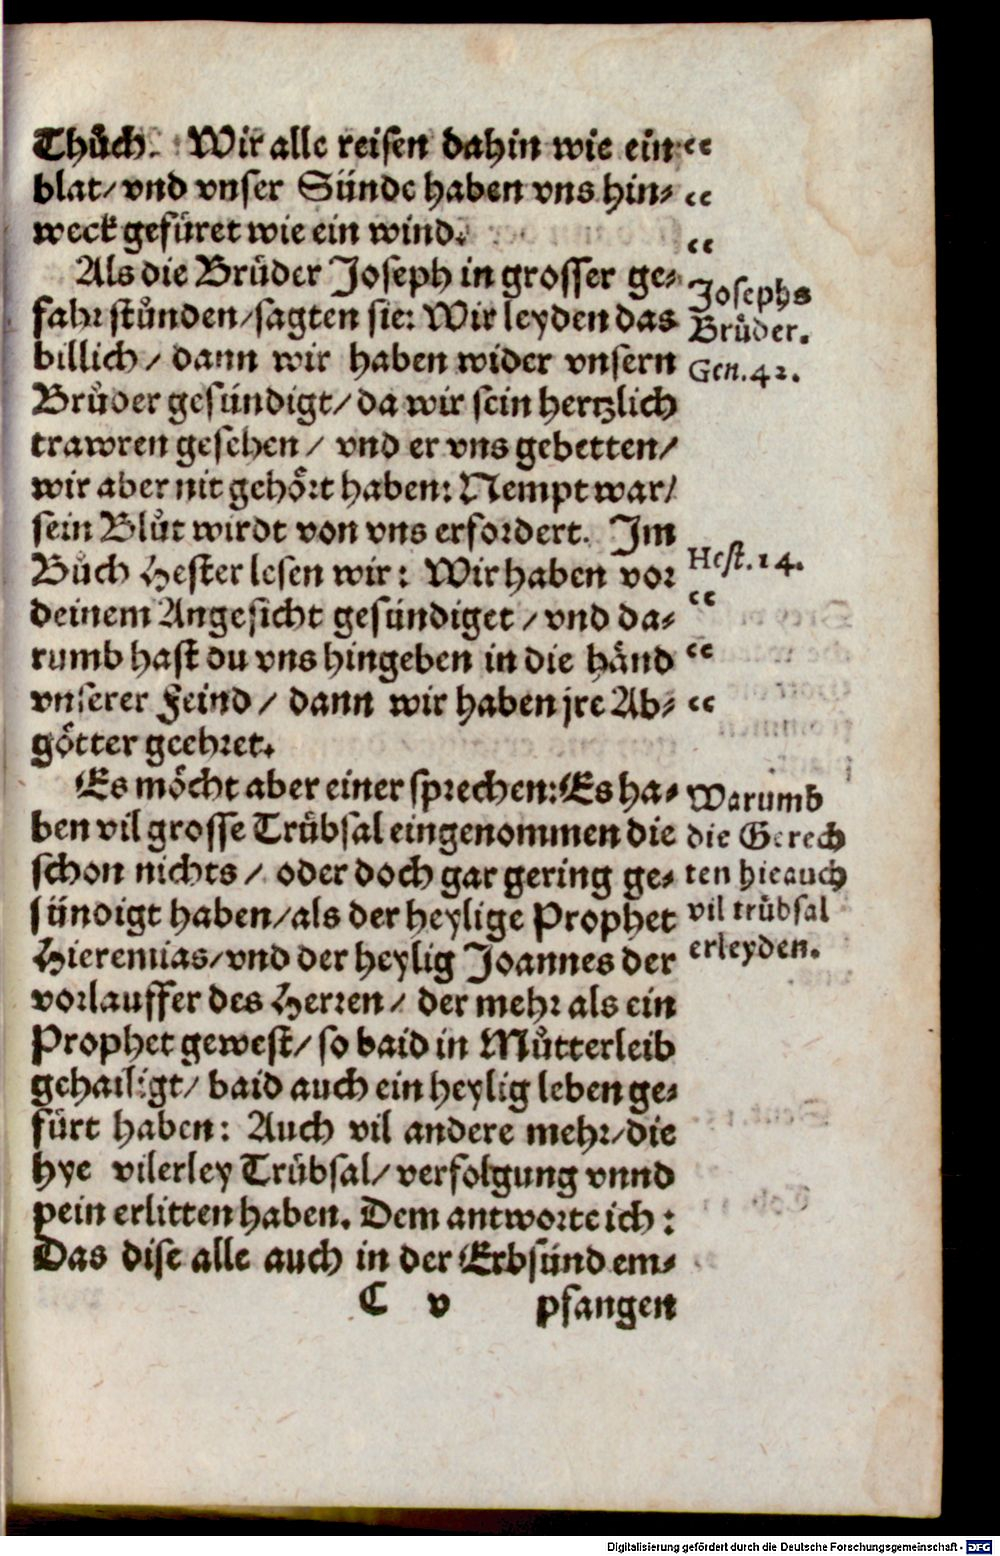 Thůch. Wir alle reisen dahin wie ein “
blat/ vnd vnser Sünde haben vns hin- “
weck gefüret wie ein wind. “
Als die Brüder Joseph in grosser ge-
fahr stůnden/ sagten sie: Wir leyden das
billich/ dann wir haben wider vnsern
Brůder gesündigt/ da wir sein hertzlich
trawren gesehen/ vnd er vns gebetten/
wir aber nit gehört haben: Nempt war/
sein Blůt wirdt von vns erfordert. Im
Bůch Hester lesen wir: Wir haben vor
deinem Angesicht gesündiget/ vnd da-
rumb hast du vns hingeben in die händ
vnserer Feind/ dann wir haben jre Ab-
götter geehret.
Josephs
Brüder.
Gen. 42.
Hest. 14.
“
“
“
Es möcht aber einer sprechen: Es ha-
ben vil grosse Trübsal eingenommen die
schon nichts/ oder doch gar gering ge-
sündigt haben/ als der heylige Prophet
Hieremias/ vnd der heylig Joannes der
vorlauffer des Herren/ der mehr als ein
Prophet gewest/ so baid in Můtterleib
gehailigt/ baid auch ein heylig leben ge-
fürt haben: Auch vil andere mehr/ die
hye vilerley Trübsal/ verfolgung vnnd
pein erlitten haben. Dem antworte ich:
Das dise alle auch in der Erbsünd em-
Warumb
die Gerech
ten hie auch
vil trübsal
erleyden.
C v pfangen
Digitalisierung gefördert durch die Deutsche Forschungsgemeinschaft - DFG